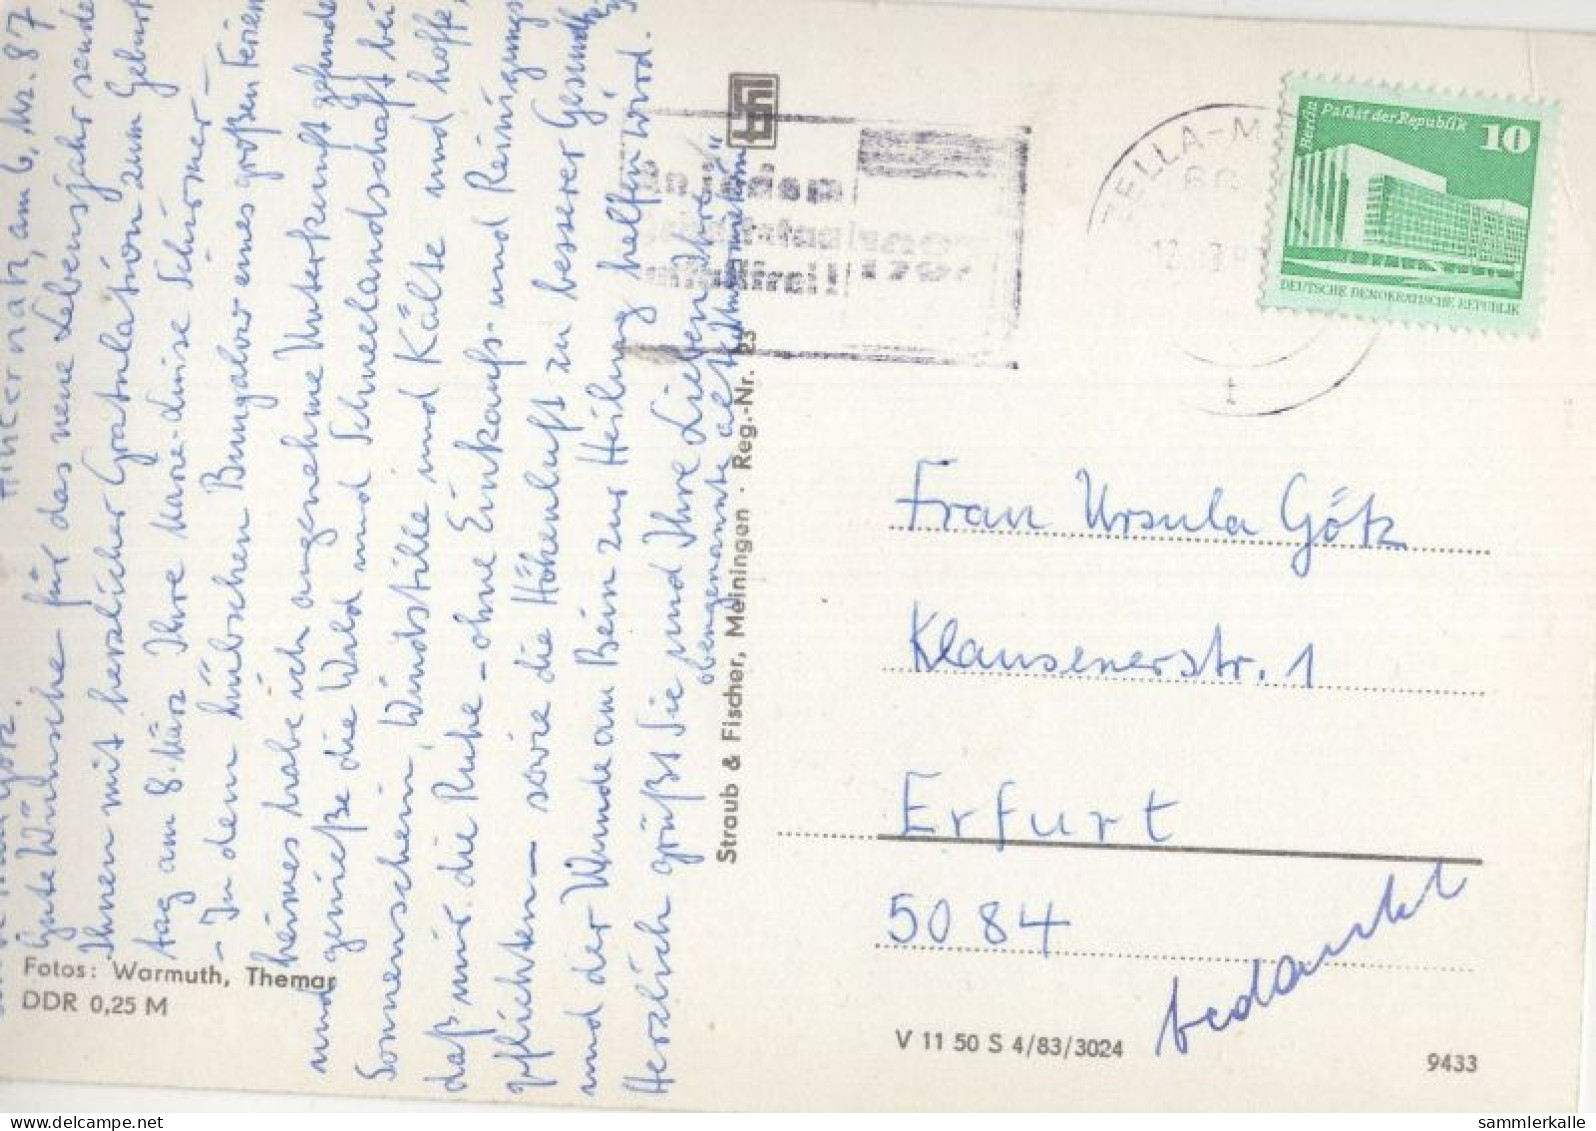 am 6. Mrz. 87
Gute Wünsche für das neue Lebensjahr sende
Ihnen mit herzlicher Gratulation zum Geburts
tag am 8. März Ihre Marie-Luise Schirmer -
- In dem hübschen Bungalow eines großen Ferien
heimes habe ich angenehme Unterkunft gefunden
und genieße die Wald und Schneelandschaft bei
Sonnenschein, Windstille und Kälte und hoffe,
daß mir die Ruhe - ohne Einkaufs- und Reinigungs
pflichten - sowie die Höhenluft zu besserer Gesundheit
und der Wunde am Bein zur Heilung helfen wird.
Herzlich grüßt Sie und Ihre Lieben Ihre
Fotos: Warmuth, Themar
DDR 0,25 M
Straub & Fischer, Meiningen · Reg.-Nr. 23
ZELLA-M
Berlin Palast der Republik
10
DEUTSCHE DEMOKRATISCHE REPUBLIK
Frau Ursula Götz
Klausenerstr. 1
Erfurt
5084
bedankt
V 11 50 S 4/83/3024
9433
sammlerkalle